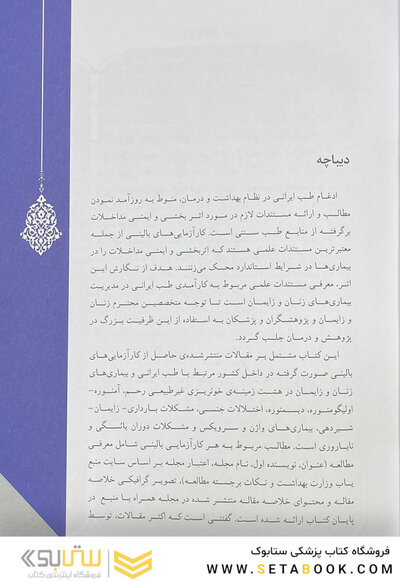 دیباچه
ادغام طب ایرانی در نظام بهداشت و درمان، منوط به روزآمد نمودن
مطالب و ارائه مستندات لازم در مورد اثر بخشی و ایمنی مداخلات
برگرفته از منابع طب سنتی است. کارآزمایی‌های بالینی از جمله
معتبرترین مستندات علمی هستند که اثربخشی و ایمنی مداخلات را در
بیماری‌ها در شرایط استاندارد محک می‌زنند. هدف از نگارش این
اثر، معرفی مستندات علمی مربوط به کارآمدی طب ایرانی در مدیریت
بیماری‌های زنان و زایمان است تا توجه متخصصین محترم زنان
و زایمان و پژوهشگران و پزشکان به استفاده از این ظرفیت بزرگ در
پژوهش و درمان جلب گردد.
این کتاب مشتمل بر مقالات منتشرشده‌ی حاصل از کارآزمایی‌های
بالینی صورت گرفته در داخل کشور مرتبط با طب ایرانی و بیماری‌های
زنان و زایمان در هشت زمینه‌ی خونریزی غیرطبیعی رحم، آمنوره-
اولیگومنوره، دیسمنوره، اختلالات جنسی، مشکلات بارداری- زایمان-
شیردهی، بیماری‌های واژن و سرویکس و مشکلات دوران یائسگی و
ناباروری است. مطالب مربوط به هر کارآزمایی بالینی شامل معرفی
مطالعه (عنوان، نویسنده اول، نام مجله، اعتبار مجله بر اساس سایت منبع
یاب وزارت بهداشت و نکات برجسته مطالعه)، تصویر گرافیکی خلاصه
مقاله و محتوای خلاصه مقاله منتشر شده در مجله همراه با منبع در
پایان کتاب ارائه شده است. گفتنی است که اکثر مقالات، توسط
فروشگاه کتاب پزشکی ستابوک
WWW.SETABOOK.COM
ستابوک
فروشگاه اینترنتی کتاب